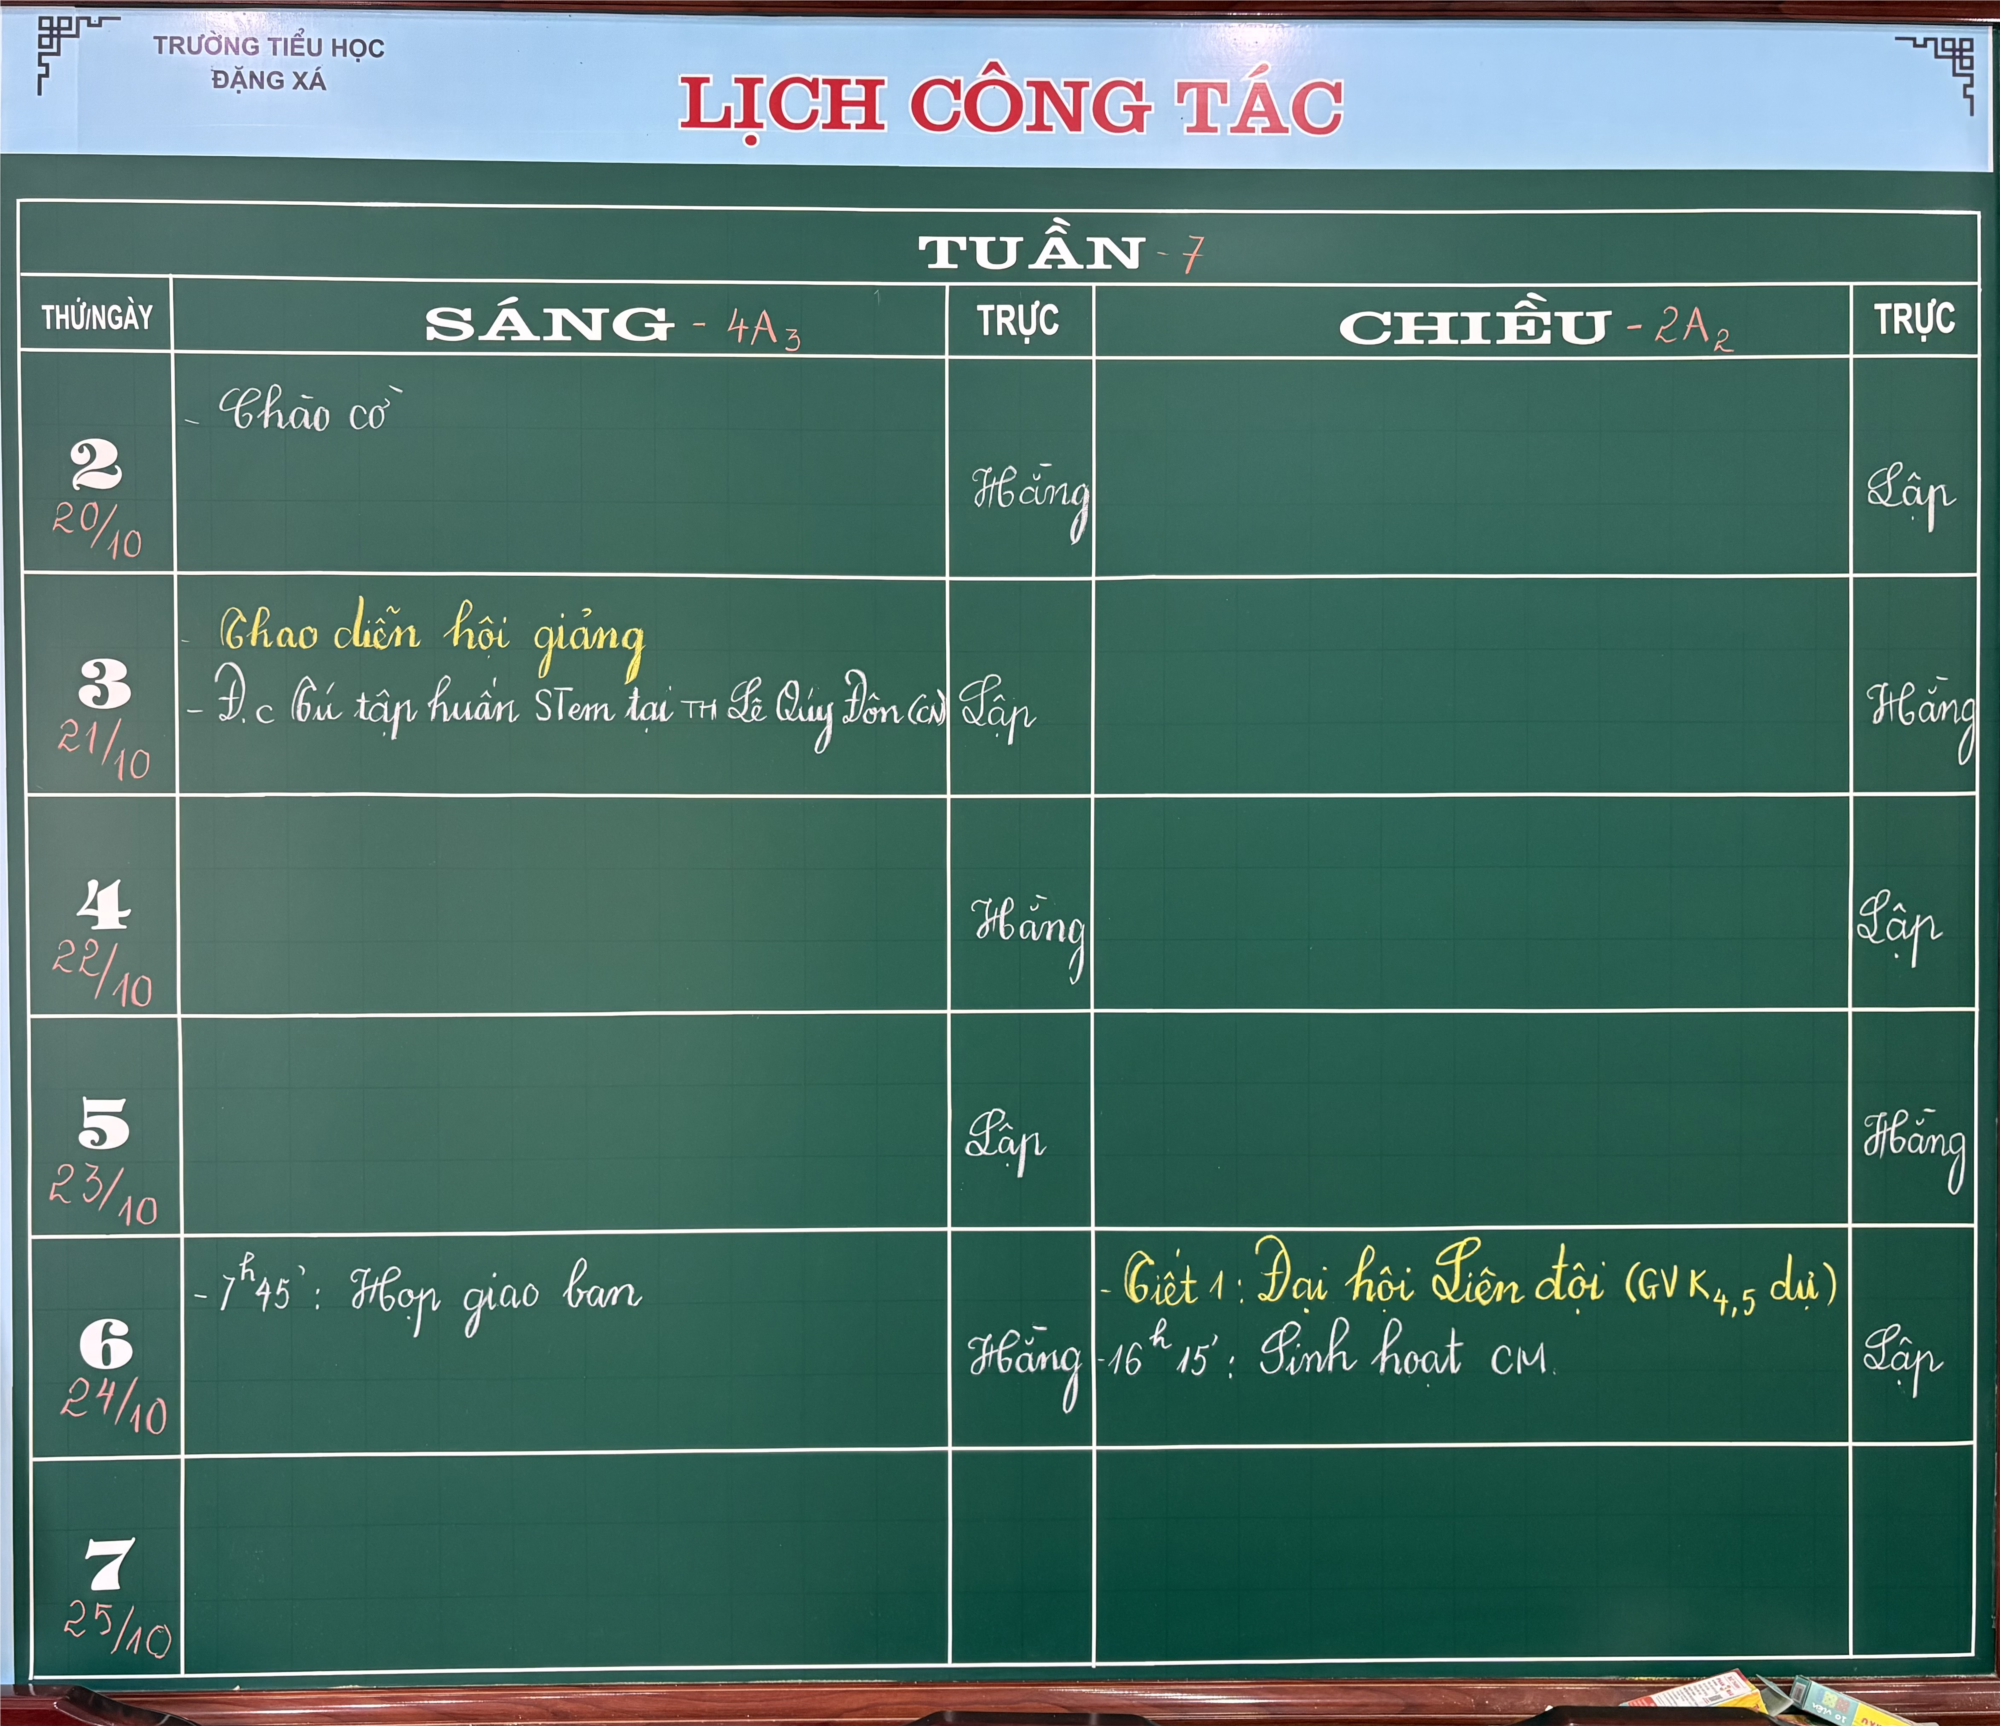 TRƯỜNG TIỂU HỌC
ĐẶNG XÁ
LỊCH CÔNG TÁC
TUẦN - 7
THỨ/NGÀY
SÁNG - 4A3
TRỰC
CHIỀU - 2A2
TRỰC
2
20/10
- Chào cờ
Hằng
Lập
3
21/10
- Thao diễn hội giảng
- Đ.c Tú tập huấn STem tại TH Lê Qúy Đôn (CN)
Lập
Hằng
4
22/10
Hằng
Lập
5
23/10
Lập
Hằng
6
24/10
- 7h45': Họp giao ban
Hằng
- Tiết 1: Đại hội Liên đội (GV K4,5 dự)
- 16h15': Sinh hoạt CM.
Lập
7
25/10